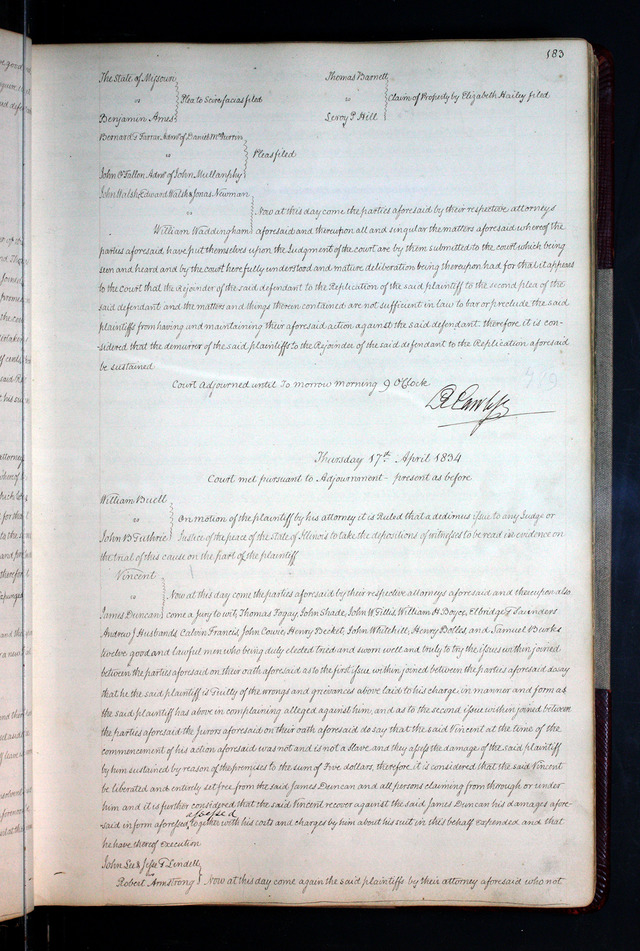 183
The State of Missouri
vs } Plea to Scire facias filed
Benjamin Ames
Thomas Barnett
vs } Claim of Property by Elizabeth Hailey filed
Leroy P Hill
Bernard G Farrar Admr of Daniel
vs } Pleas filed
John O'Fallon Admr of John Mullanphy
John Walsh, Edward Walsh & Jonas Newman
vs } Now at this day come the parties aforesaid by their respective attorneys
William Waddingham aforesaid and thereupon all and singular the matters aforesaid whereof the
parties aforesaid have put themselves upon the Judgment of the court are by them submitted to the court which being
seen and heard and by the court here fully understood and mature deliberation being thereupon had for that it appears
to the court that the Rejoinder of the said defendant to the Replication of the said plaintiff to the second plea of the
said defendant and the matters and things therein contained are not sufficient in law to bar or preclude the said
plaintiffs from having und maintaining their aforesaid action against the said defendant. therefore it is con-
sidered that the demurrer of the said plaintiffs to the Rejoinder of the said defendant to the Replication aforesaid
be sustained
Court Adjourned until To morrow morning 9 O'Clock
Thursday 17th April 1834
Court met pursuant to Adjournment – present as before
William Buell
vs } On motion of the plaintiff by his attorney it is Ruled that a dedimus issue to any Judge or
John B Guthrie Justice of the peace of the State of Illinois to take the depositions of witnesses to be read in evidence on
the trial of this cause on the part of the plaintiff
Vincent
vs } Now at this day come the parties aforesaid by their respective attorneys aforesaid and thereupon also
James Duncan come a Jury to wit, Thomas Fagay, John Shade, John W Tillis, William H Boyce, Elbridge G Saunders
Andrew J Husbands, Calvin Francis, John Cowie, Henry Becket, John Whitehill, Henry Bolles, and Samuel Burks
twelve good and lawful men who being duly elected tried and sworn well and truly to try the issues within joined
between the parties aforesaid on their oath aforesaid as to the first issue within joined between the parties aforesaid do say
that he the said plaintiff is Guilty of the wrongs and grievances above laid to his charge, in manner and form as
the said plaintiff has above in complaining alleged against him, and as to the second issue within joined between
the parties aforesaid the jurors aforesaid on their oath aforesaid do say that the said Vincent at the time of the
commencement of his action aforesaid was not and is not a slave, and they assess the damage of the said plaintiff
by him sustained by reason of the premises to the sum of Five dollars, therefore it is considered that the said Vincent
be liberated and entirely set free from the said James Duncan and all persons claiming from through or under
him and it is further considered that the said Vincent recover against the said James Duncan his damages afore-
said in form aforesaid assessed together with his costs and charges by him about his suit in this behalf expended and that
he have thereof execution
John Lee & Jesse G Lindell
Robert Armstrong } Now at this day come again the said plaintiffs by their attorney aforesaid who not